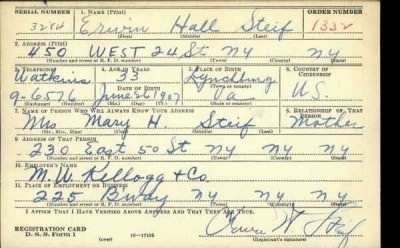 SERIAL NUMBER 1. NAME (Print) ORDER NUMBER
3284 Erwin Hall Steif 1332
(First) (Middle) (Last)
2. ADDRESS (Print)
450 WEST 24 St NY NY
(Number and street or R. F. D. number) (Town) (County) (State)
3. TELEPHONE 4. AGE IN YEARS 5. PLACE OF BIRTH 6. COUNTRY OF CITIZENSHIP
Watkins 33 Lynchburg
DATE OF BIRTH (Town or county)
9-6576 June 26 1907 Va U.S.
(Exchange) (Number) (Mo.) (Day) (Yr.) (State or country)
7. NAME OF PERSON WHO WILL ALWAYS KNOW YOUR ADDRESS 8. RELATIONSHIP OF THAT PERSON
Mrs Mary H. Steif Mother
(Mr., Mrs., Miss) (First) (Middle) (Last)
9. ADDRESS OF THAT PERSON
230 East 50 St NY NY NY
(Number and street or R. F. D. number) (Town) (County) (State)
10. EMPLOYER'S NAME
M.W. Kellogg + Co.
11. PLACE OF EMPLOYMENT OR BUSINESS
225 Bway NY NY NY
(Number and street or R. F. D. number) (Town) (County) (State)
I AFFIRM THAT I HAVE VERIFIED ABOVE ANSWERS AND THAT THEY ARE TRUE.
REGISTRATION CARD
D. S. S. Form 1 (over) (Registrant's signature)